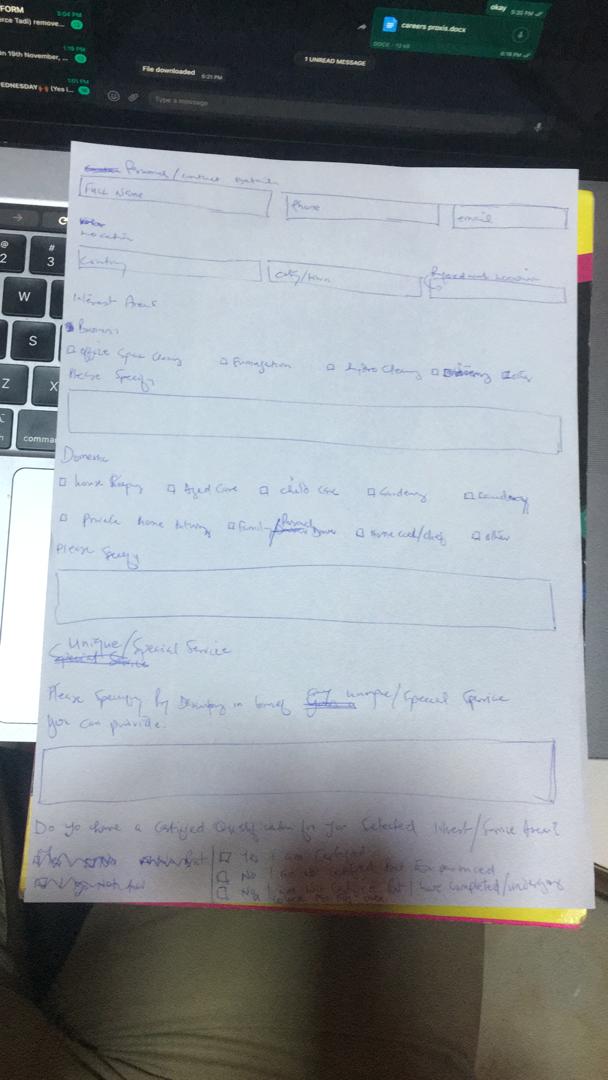 FORM
3:04 PM
erce Tadi) remove...
1:19 PM
on 19th November, ...
1:01 PM
EDNESDAY 🙌 (Yes i...
okay 5:35 PM
careers proxis.docx
DOCX · 12 kB 6:19 PM
1 UNREAD MESSAGE
File downloaded 6:21 PM
Type a message
@ 2 # 3
W
S
Z X
comma
Personal/Contact Details
Full Name Phone email
Location
Country City/town Location
Interest Areas
Business
office Space Cleaning Fumigation Cleaning
Please Specify
Domestic
house keeping Aged Care child care Gardening Laundry
Private home tutoring Family/Personal Driver Home cook/chef other
Please Specify
Unique/Special Service
Please Specify By Describing in brief any unique/Special Service
you can provide.
Do you have a Certified Qualification for your Selected Interest/Service Area?
Yes I am Certified
No I am not certified but Experienced
No, I am not but I have completed/undergone